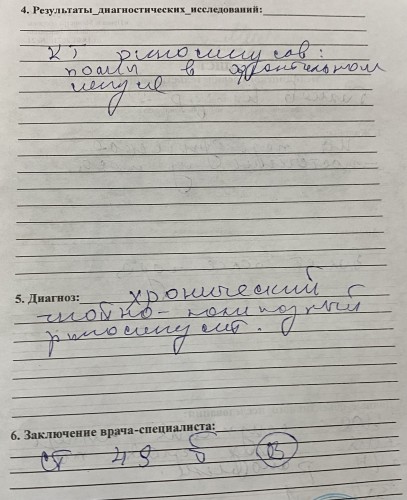 4. Результаты_диагностических_исследований:
КТ риносинусов:
полип в фронтальном
синусе
5. Диагноз: хронический
гнойно-полипозный
риносинусит.
6. Заключение врача-специалиста:
СТ 49 б В